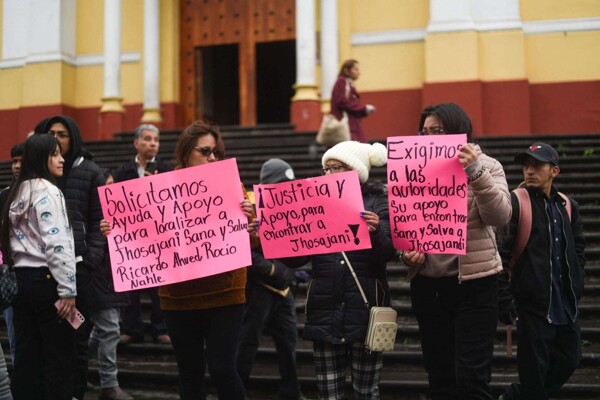 Solicitamos
Ayuda y Apoyo
para localizar a
Jhosajani Sana y Salva
Ricardo Ahued Rocio
Nahle
¡Justicia y
Apoyo, para
encontrar a
Jhosajani!
Exigimos
a las
autoridades
su apoyo
para encontrar
Sana y Salva a
Jhosajandi